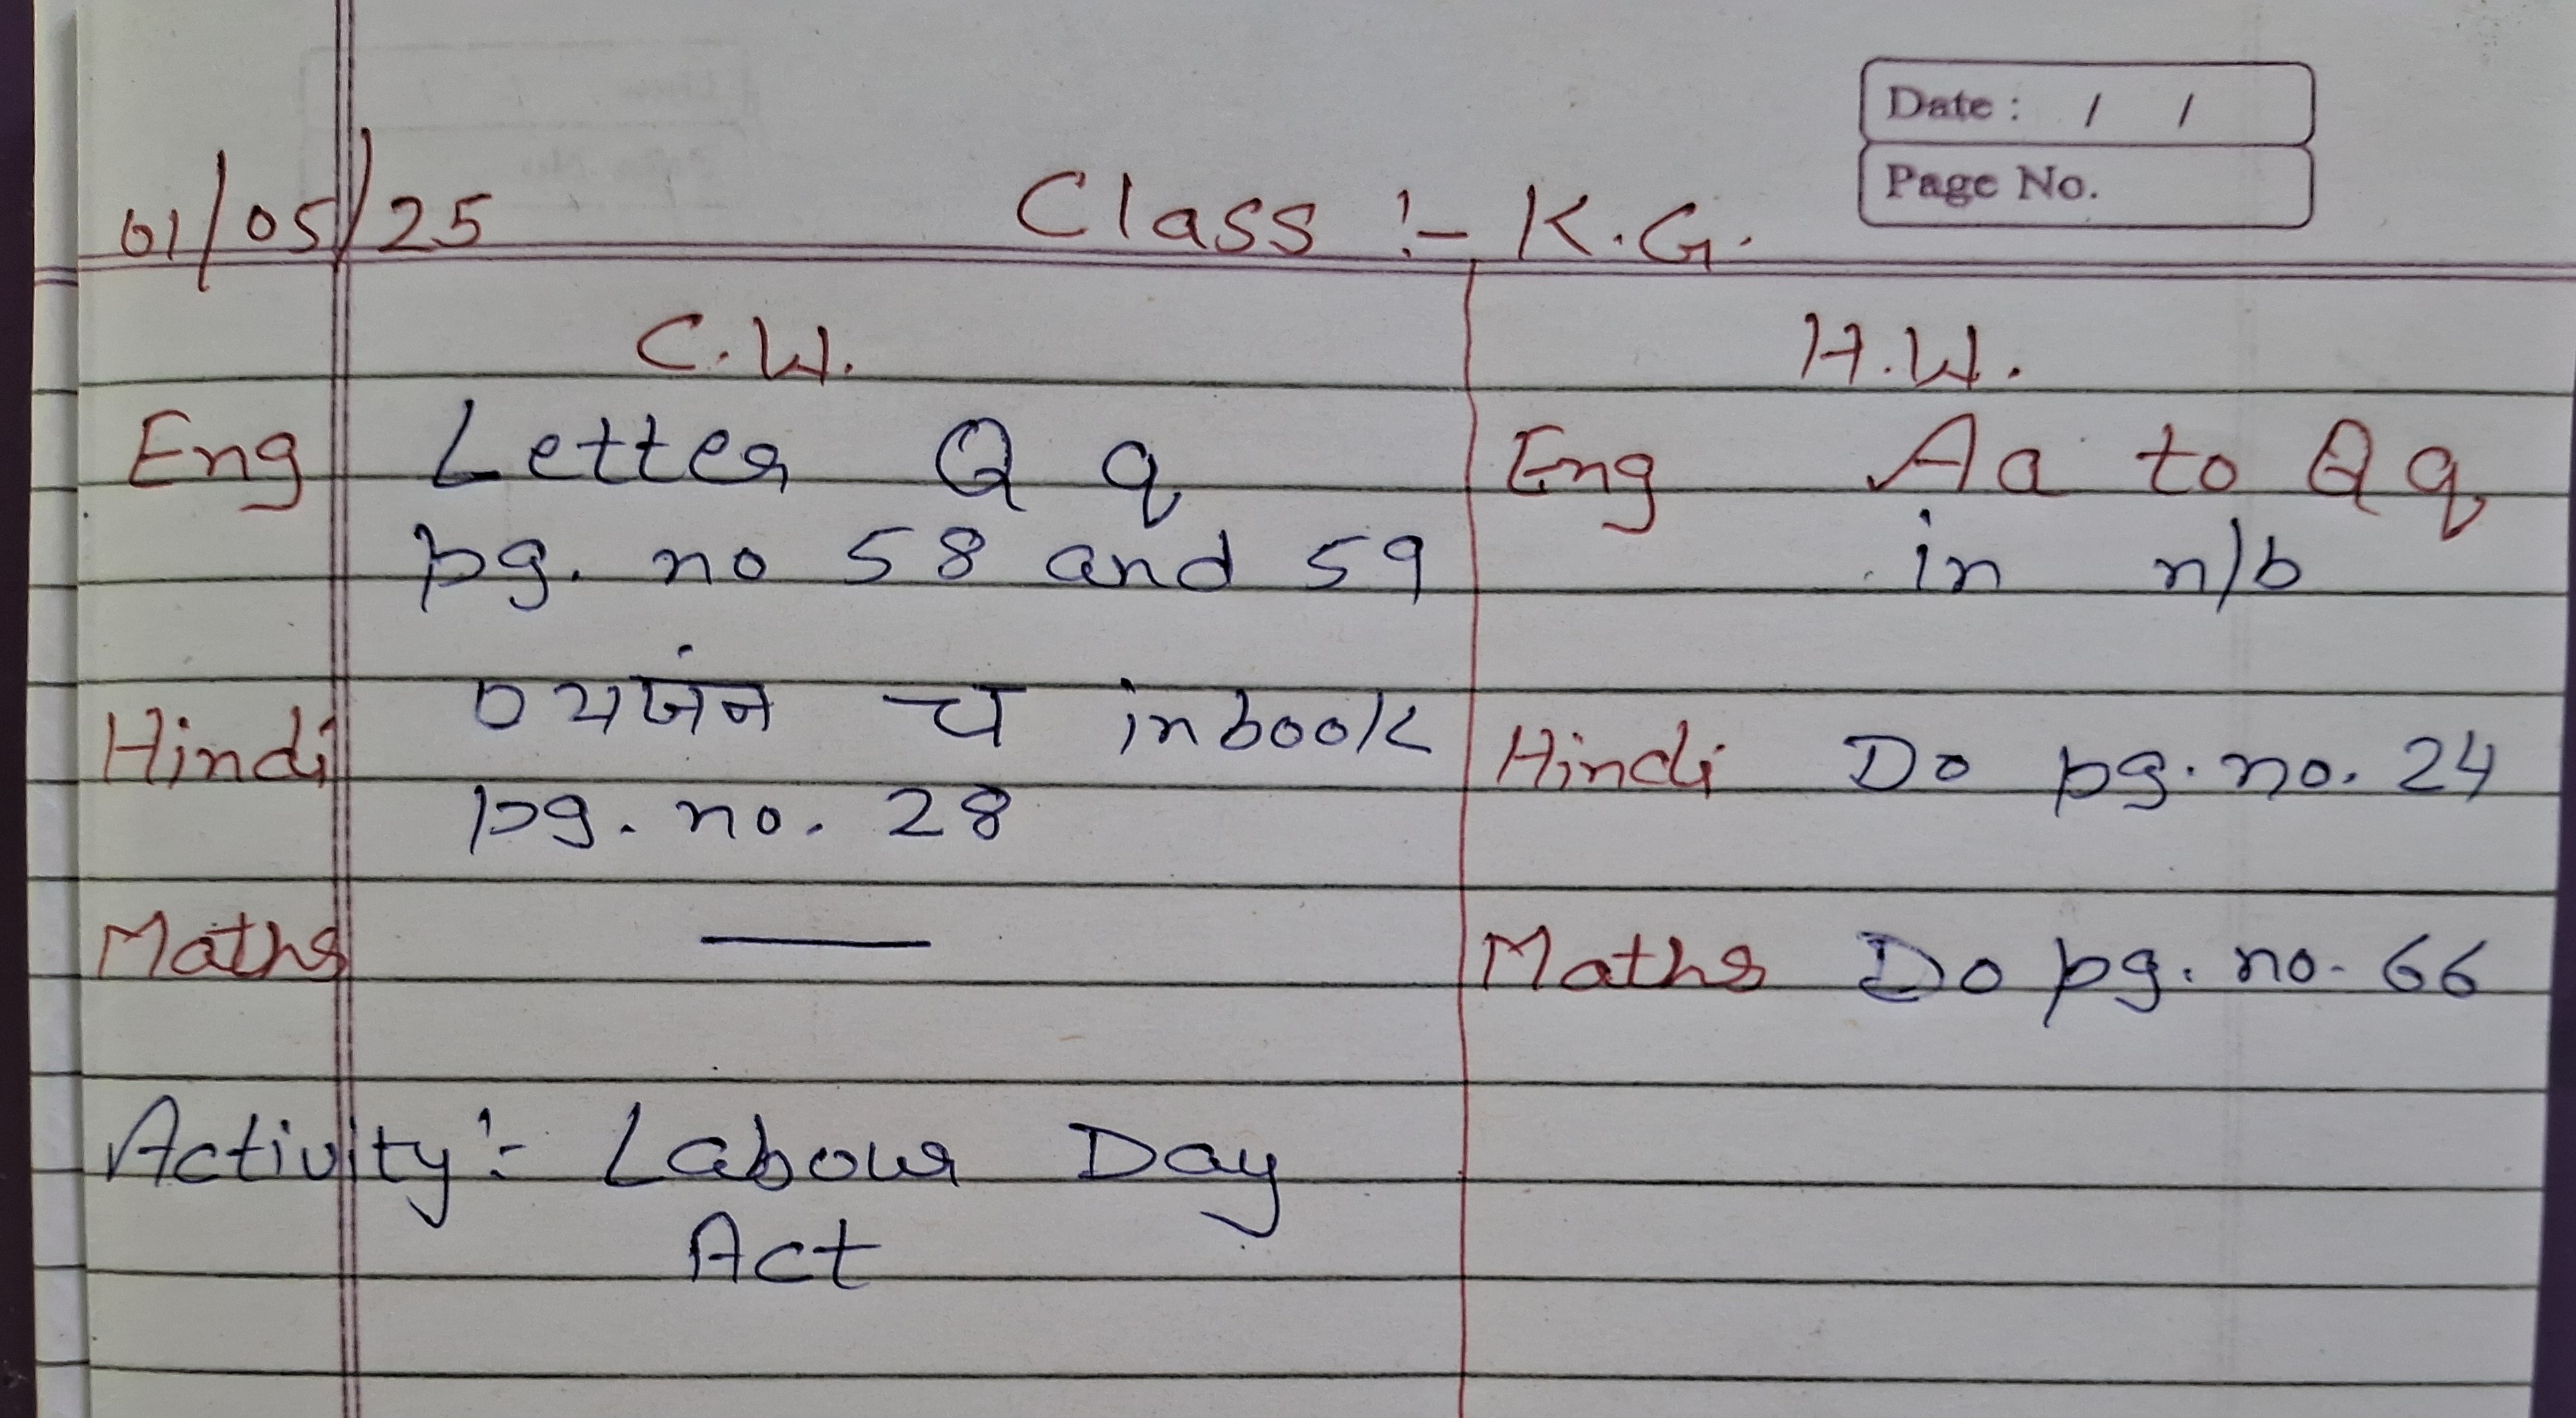 Date : / /
Page No.
01/05/25 Class :- K.G.
C.W. H.W.
Eng Letter Q q Eng Aa to Qq
pg. no 58 and 59 in n/b
Hindi व्यजंन च in book Hindi Do pg. no. 24
pg. no. 28
Maths — Maths Do pg. no. 66
Activity :- Labour Day
Act